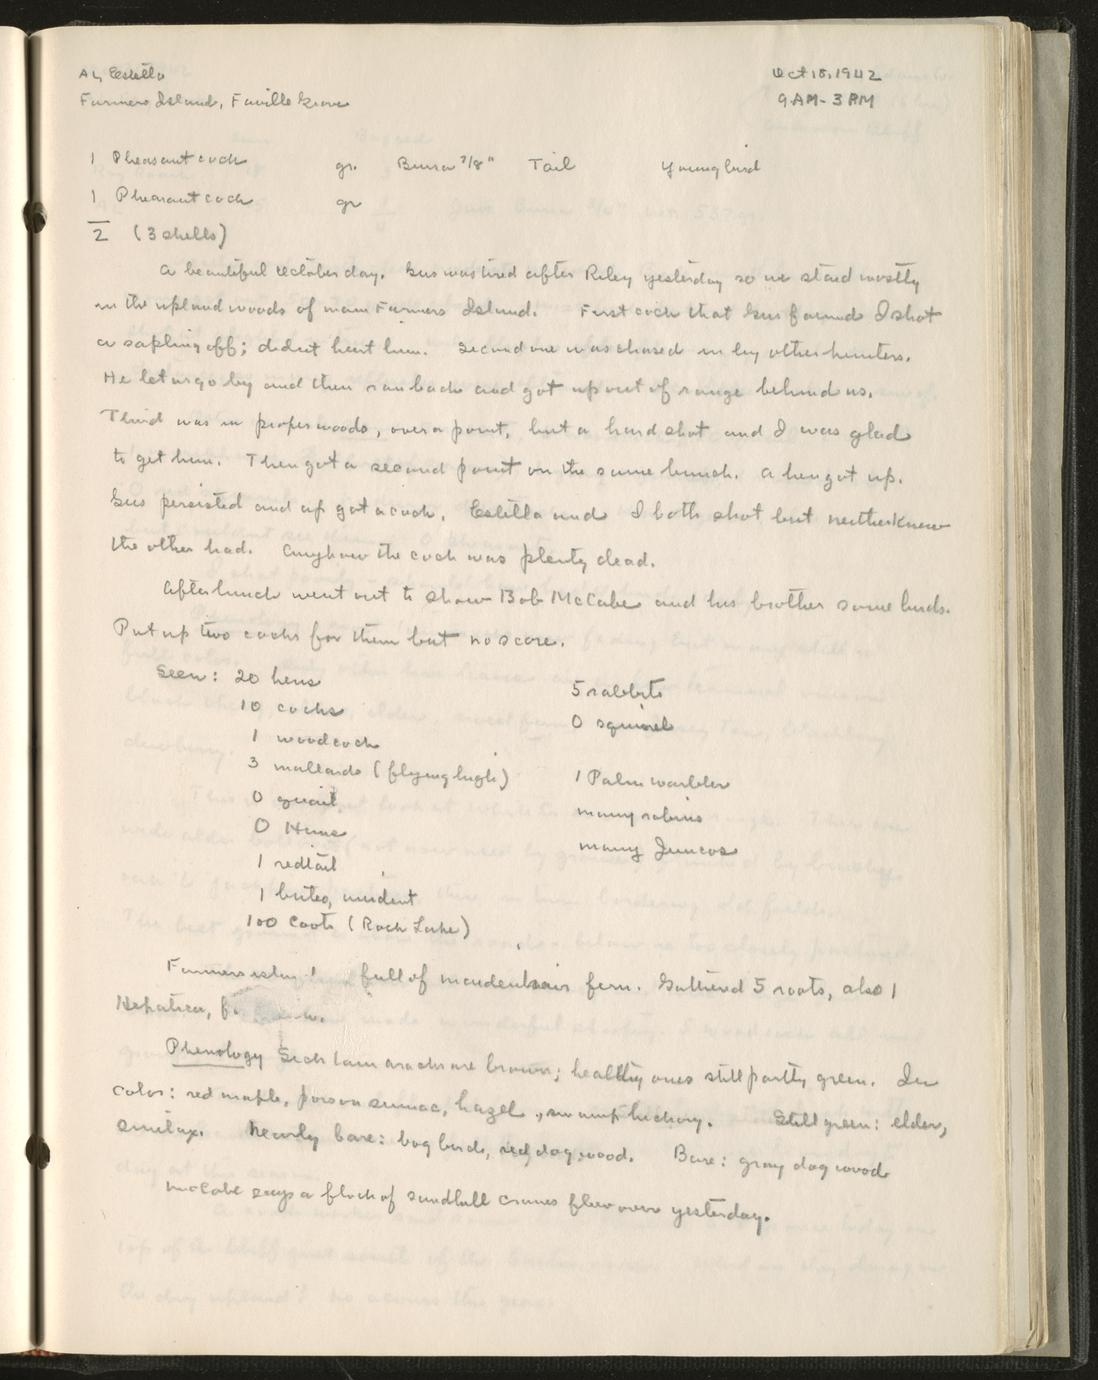 AL, Estella
Oct 18, 1942
Farmers Island, Faville Grove
9 AM - 3 PM
1 Pheasant cock gr. Bursa 7/8" Tail Young bird
1 Pheasant cock gr
2 (3 shells)
A beautiful October day. Gus was tired after Riley yesterday so we staid mostly
in the upland woods of main Farmers Island. First cock that Gus found I shot
a sapling off; didnt hurt him. Second one was chased in by other hunters.
He let us go by and then ran back and got up out of range behind us.
Third was in proper woods, over a point, but a hard shot and I was glad
to get him. Then got a second point on the same bunch. A hen got up.
Gus persisted and up got a cock. Estella and I both shot but neither knew
the other had. Anyhow the cock was plenty dead.
After lunch went out to show Bob McCabe and his brother some birds.
Put up two cocks for them but no score.
Seen: 20 hens
10 cocks
1 woodcock
3 mallards (flying high)
0 quail
0 Huns
1 redtail
1 buteo, unident
100 Coots (Rock Lake)
5 rabbits
0 squirrel
1 Palm warbler
many robins
many Juncos
Farmers full of maidenhair fern. Gathered 5 roots, also 1
Hepatica,
Phenology Sick tamaracks are brown; healthy ones still partly green. In
color: red maple, poison sumac, hazel, swamp hickory. Still green: elder,
Smilax. Nearly bare: bog birch, red dogwood. Bare: gray dogwood
McCabe says a flock of sandhill cranes flew over yesterday.